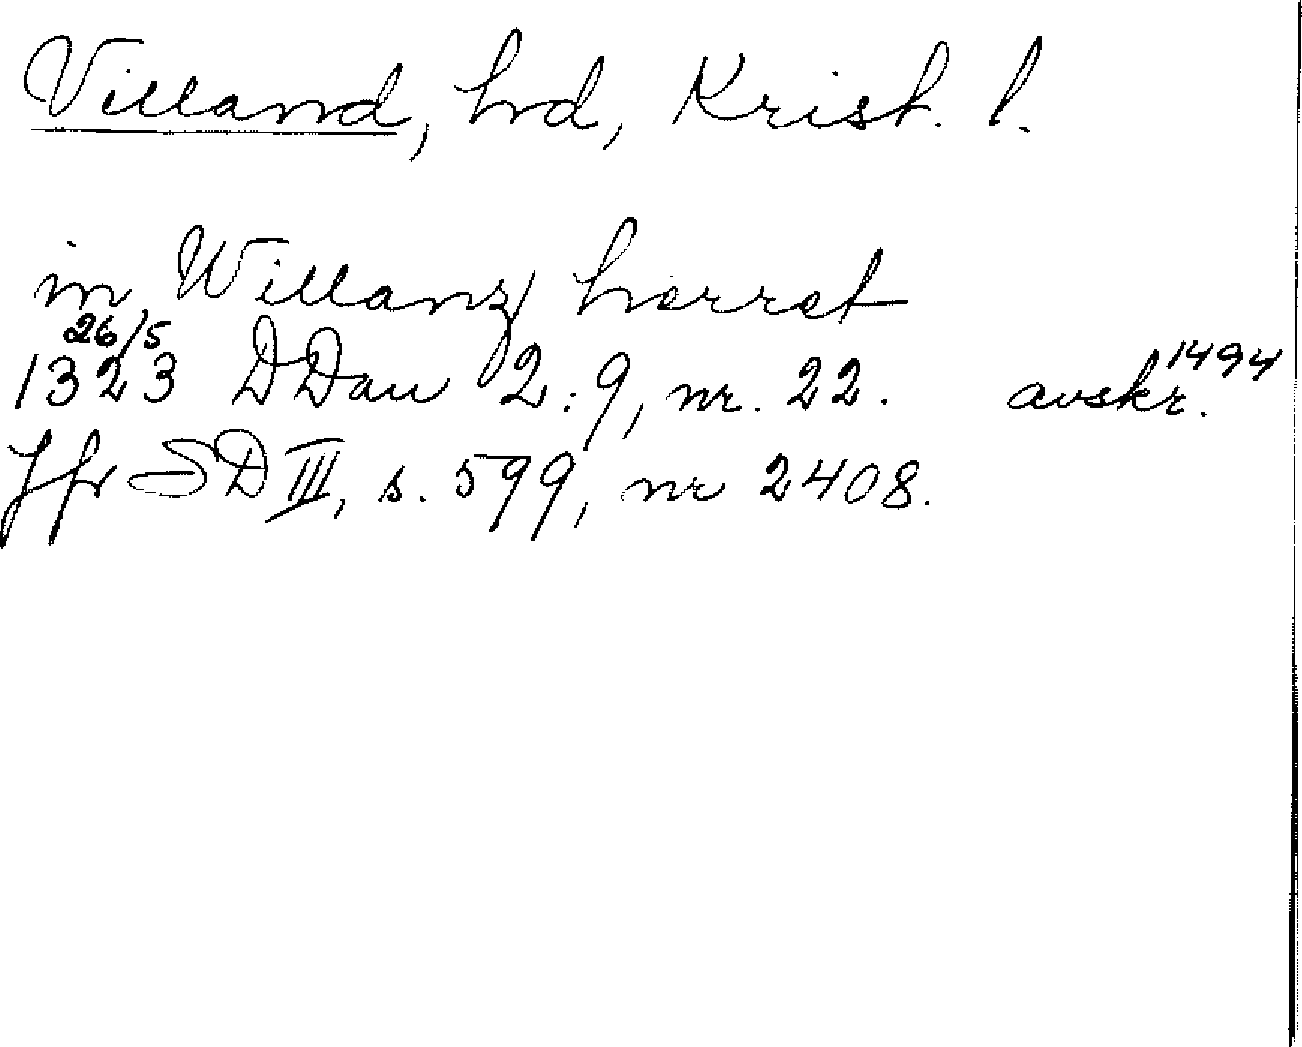 Villand, hd, Krist. l.
in Willanz herret
26/5
1323 DDan 2:9, nr. 22. avskr. 1494
Jfr SD III, s. 599, nr 2408.